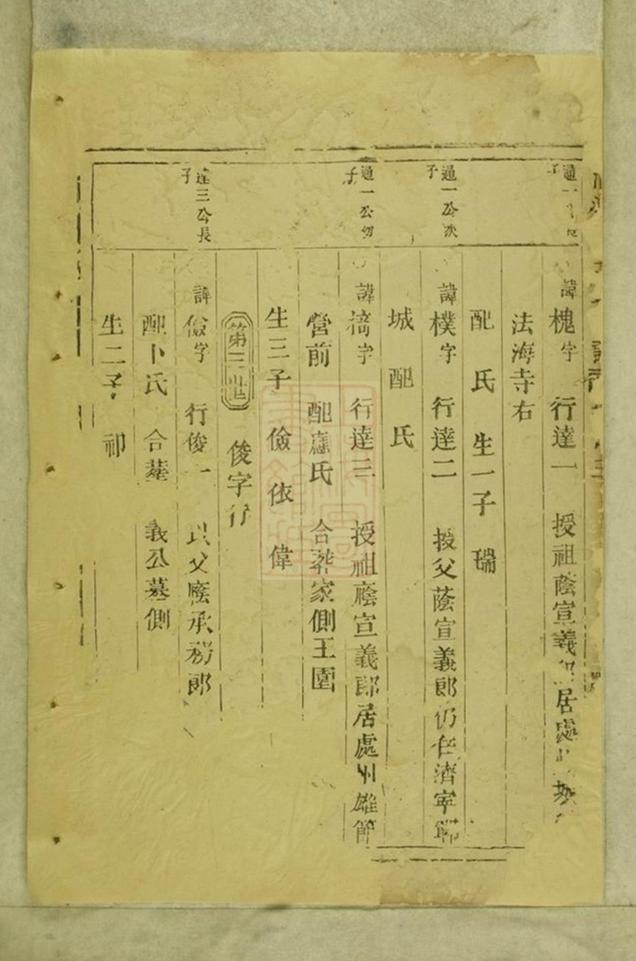 通一公長子
諱槐字 行達一 授祖蔭宣義 居處
法海寺右
配 氏 生一子 瑞
通一公次子
諱樸字 行達二 授父蔭宣義郎仍任濟寧
城 配 氏
通一公幼子
諱 字 行達三 授祖蔭宣義郎居處州雄節
營前 配 氏 合葬家側王園
生三子 儉 依 偉
第三世 俊字行
達三公長子
諱儉字 行俊一 以父蔭承務郎
配卜氏 合墓 義公墓側
生二子 祁